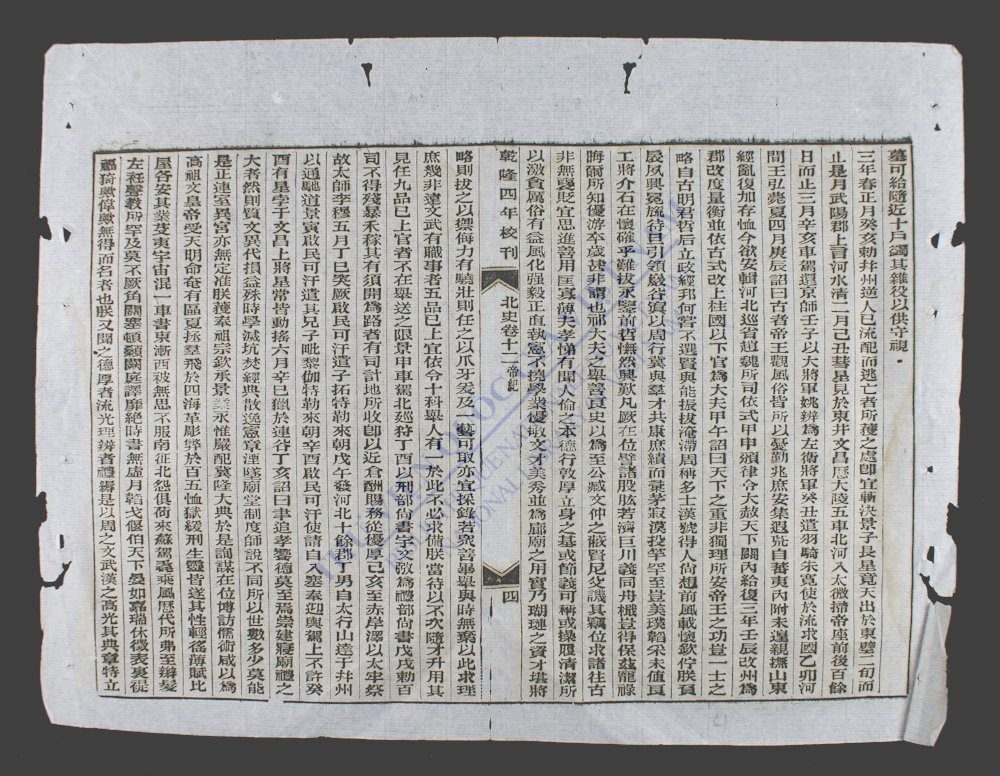 墓可給隨近十戶蠲其雜役以供守視
三年春正月癸亥勅幷州逆人已流配而逃亡者所獲之處卽宜斬決景子長星竟天出於東壁二旬而
止是月武陽郡上言河水清二月己丑彗星見於東井文昌歷大陵五車北河入太微掃帝座前後百餘
日而止三月辛亥車駕還京師壬子以大將軍姚辨爲左衞將軍癸丑遣羽騎朱寬使於流求國乙卯河
間王弘薨夏四月庚辰詔曰古者帝王觀風俗皆所以憂勤兆庶安集遐荒自蕃夷內附未遑親撫山東
經亂復加存恤今欲安輯河北巡省趙魏所司依式甲申頒律令大赦天下關內給復三年壬辰改州爲
郡改度量衡並依古式改上柱國以下官爲大夫甲午詔曰天下之重非獨理所安帝王之功豈一士之
略自古明君哲后立政經邦何嘗不選賢與能振拔淹滯周稱多士漢號得人尙想前風載懷欽佇朕負
扆夙興冕旒待旦引領巖谷寘以周行冀與羣才共康庶績而彙茅寂漠投竿罕至豈美璞韜采未値良
工將介石在懷確乎難拔永鑒前哲憮然興歎凡厥在位譬諸股肱若濟巨川義同舟檝豈得保茲寵祿
晦爾所知優游卒歲甚非謂也祁大夫之舉善良史以爲至公臧文仲之蔽賢尼父譏其竊位求諸往古
非無褒貶宜思進善用匡寡薄夫孝悌有聞人倫之本德行敦厚立身之基或節義可稱或操履清潔所
以激貪厲俗有益風化强毅正直執憲不撓學業優敏文才美秀並爲廊廟之用實乃瑚璉之資才堪將
乾隆四年校刊
北史卷十二 帝紀
四
略則拔之以禦侮力有驍壯則任之以爪牙爰及一藝可取亦宜採錄若衆善畢舉與時無棄以此求理
庶幾非遠文武有職事者五品已上宜依令十科舉人有一於此不必求備朕當待以不次隨才升用其
見任九品已上官者不在舉送之限景申車駕北巡狩丁酉以刑部尙書宇文㢸爲禮部尙書戊戌勅百
司不得殘暴禾稼其有須開爲路者有司計地所收卽以近倉酬賜務從優厚己亥至赤岸澤以太牢祭
故太師李穆五月丁巳突厥啟民可汗遣子拓特勒來朝戊午發河北十餘郡丁男自太行山達于幷州
以通馳道景寅啟民可汗遣其兄子毗黎伽特勒來朝辛酉啟民可汗使請自入塞奉迎輿駕上不許癸
酉有星孛于文昌上將星常皆動搖六月辛巳獵於連谷丁亥詔曰聿追孝饗德莫至焉崇建寢廟禮之
大者然則質文異代損益殊時學滅坑焚經典散逸憲章湮墜廟堂制度師說不同所以世數多少莫能
是正連室異宮亦無定准朕獲奉祖宗欽承景業永惟嚴配冀隆大典於是詢謀在位博訪儒術咸以爲
高祖文皇帝受天明命奄有區夏拯羣飛於四海革彫弊於百王恤獄緩刑生靈皆遂其性輕徭薄賦比
屋各安其業芟夷宇宙混一車書東漸西被無思不服南征北怨俱荷來蘇駕毳乘風歷代所弗至辮髮
左衽聲教所罕及莫不厥角關塞頓顙闕庭譯靡絕時書無虛月韜戈偃伯天下晏如嘉瑞休徵表裏禔
福猗歟偉歟無得而名者也朕又聞之德厚者流光理辨者禮縟是以周之文武漢之高光其典章特立